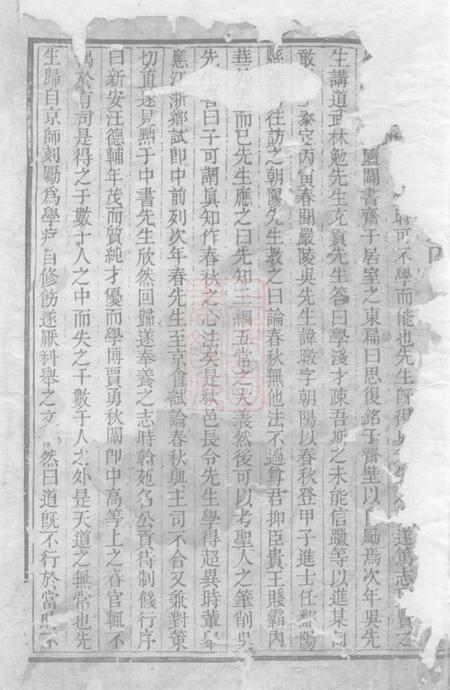 可不學而能也先生旣得遂篤志之
廬闢書齋于居室之東扁曰思復銘于齋壁以勵焉次年吳先
生講道武林勉先生充貢先生答曰學淺才疎吾斯之未能信躐等以進某何
敢泰定丙寅春聞嚴陵吳先生諱暾字朝陽以春秋登甲子進士任鄱陽
縣往訪之朝陽先生敎之曰論春秋無他法不過尊君抑臣貴王賤霸內
華而已先生應之曰先知三綱五常之大義然後可以考聖人之筆削吳
先生曰子可謂眞知作春秋之心法矣是秋邑長令先生學得超異時輩
應江浙鄉試卽中前列次年春先生至京會試論春秋與主司不合又兼對策
切直遂見黜于中書先生欣然回歸遂奉養之志時翰苑名公貢待制餞行序
曰新安汪德輔年茂而質純才優而學博賈勇秋闈卽中高等上之春官輒不
遇於有司是得之于數十人之中而失之于數千人之外是天道之無常也先
生歸自京師刻勵爲學自修飭遂厭科舉之文然曰道旣不行於當不